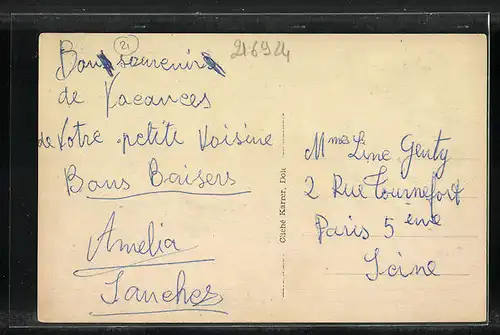 21
21 6 9 24
Bon souvenir
de Vacances
de Votre petite Voisine
Bons Baisers
Amelia
Sanchez
Cliché Karrer, Dole
Mme Line Genty
2 Rue Tournefort
Paris 5 eme
Seine